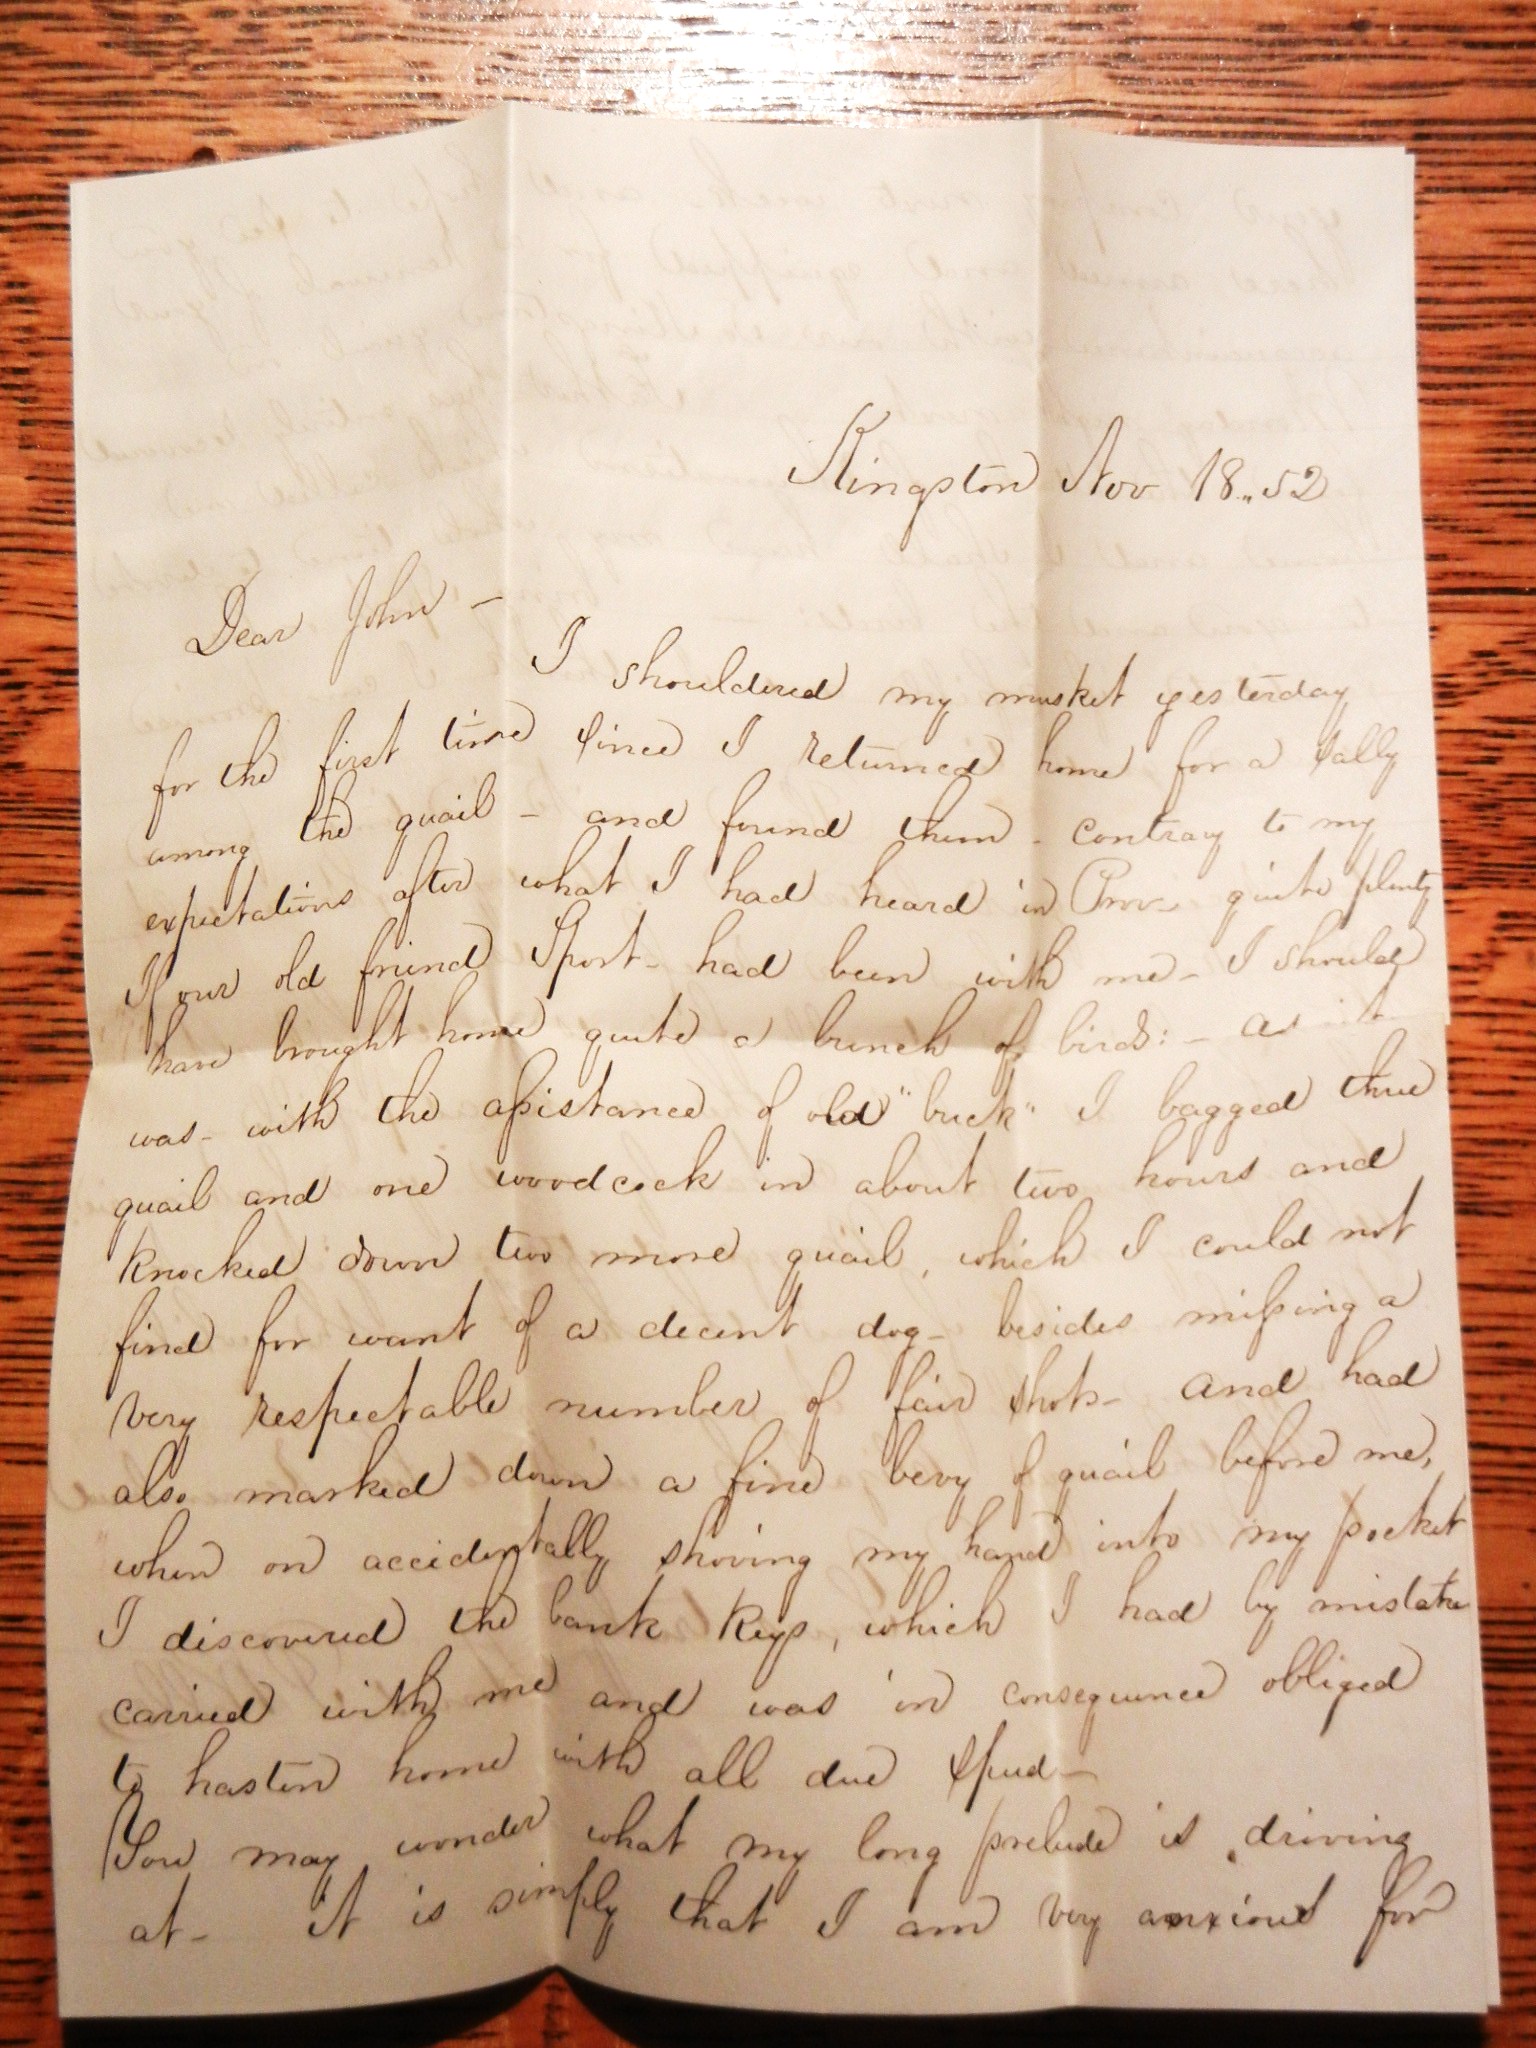 Kingston Nov 18 „ 52
Dear John –
I shouldered my musket yesterday
for the first time since I returned home for a sally
among the quail – and found them – contray to my
expectations after what I had heard in Prov– quite plenty
If our old friend Sport – had been with me – I should
have brought home quite a bunch of birds: – as it
was – with the assistance of old "buck" I bagged three
quail and one woodcock in about two hours and
knocked down two more quail, which I could not
find for want of a decent dog – besides missing a
very respectable number of fair shots – and had
also marked down a fine bevy of quail before me,
when on accidentally shoving my hand into my pocket
I discovered the bank keys, which I had by mistake
carried with me and was in consequence obliged
to hasten home with all due speed –
You may wonder what my long prelude is driving
at – it is simply that I am very anxious for